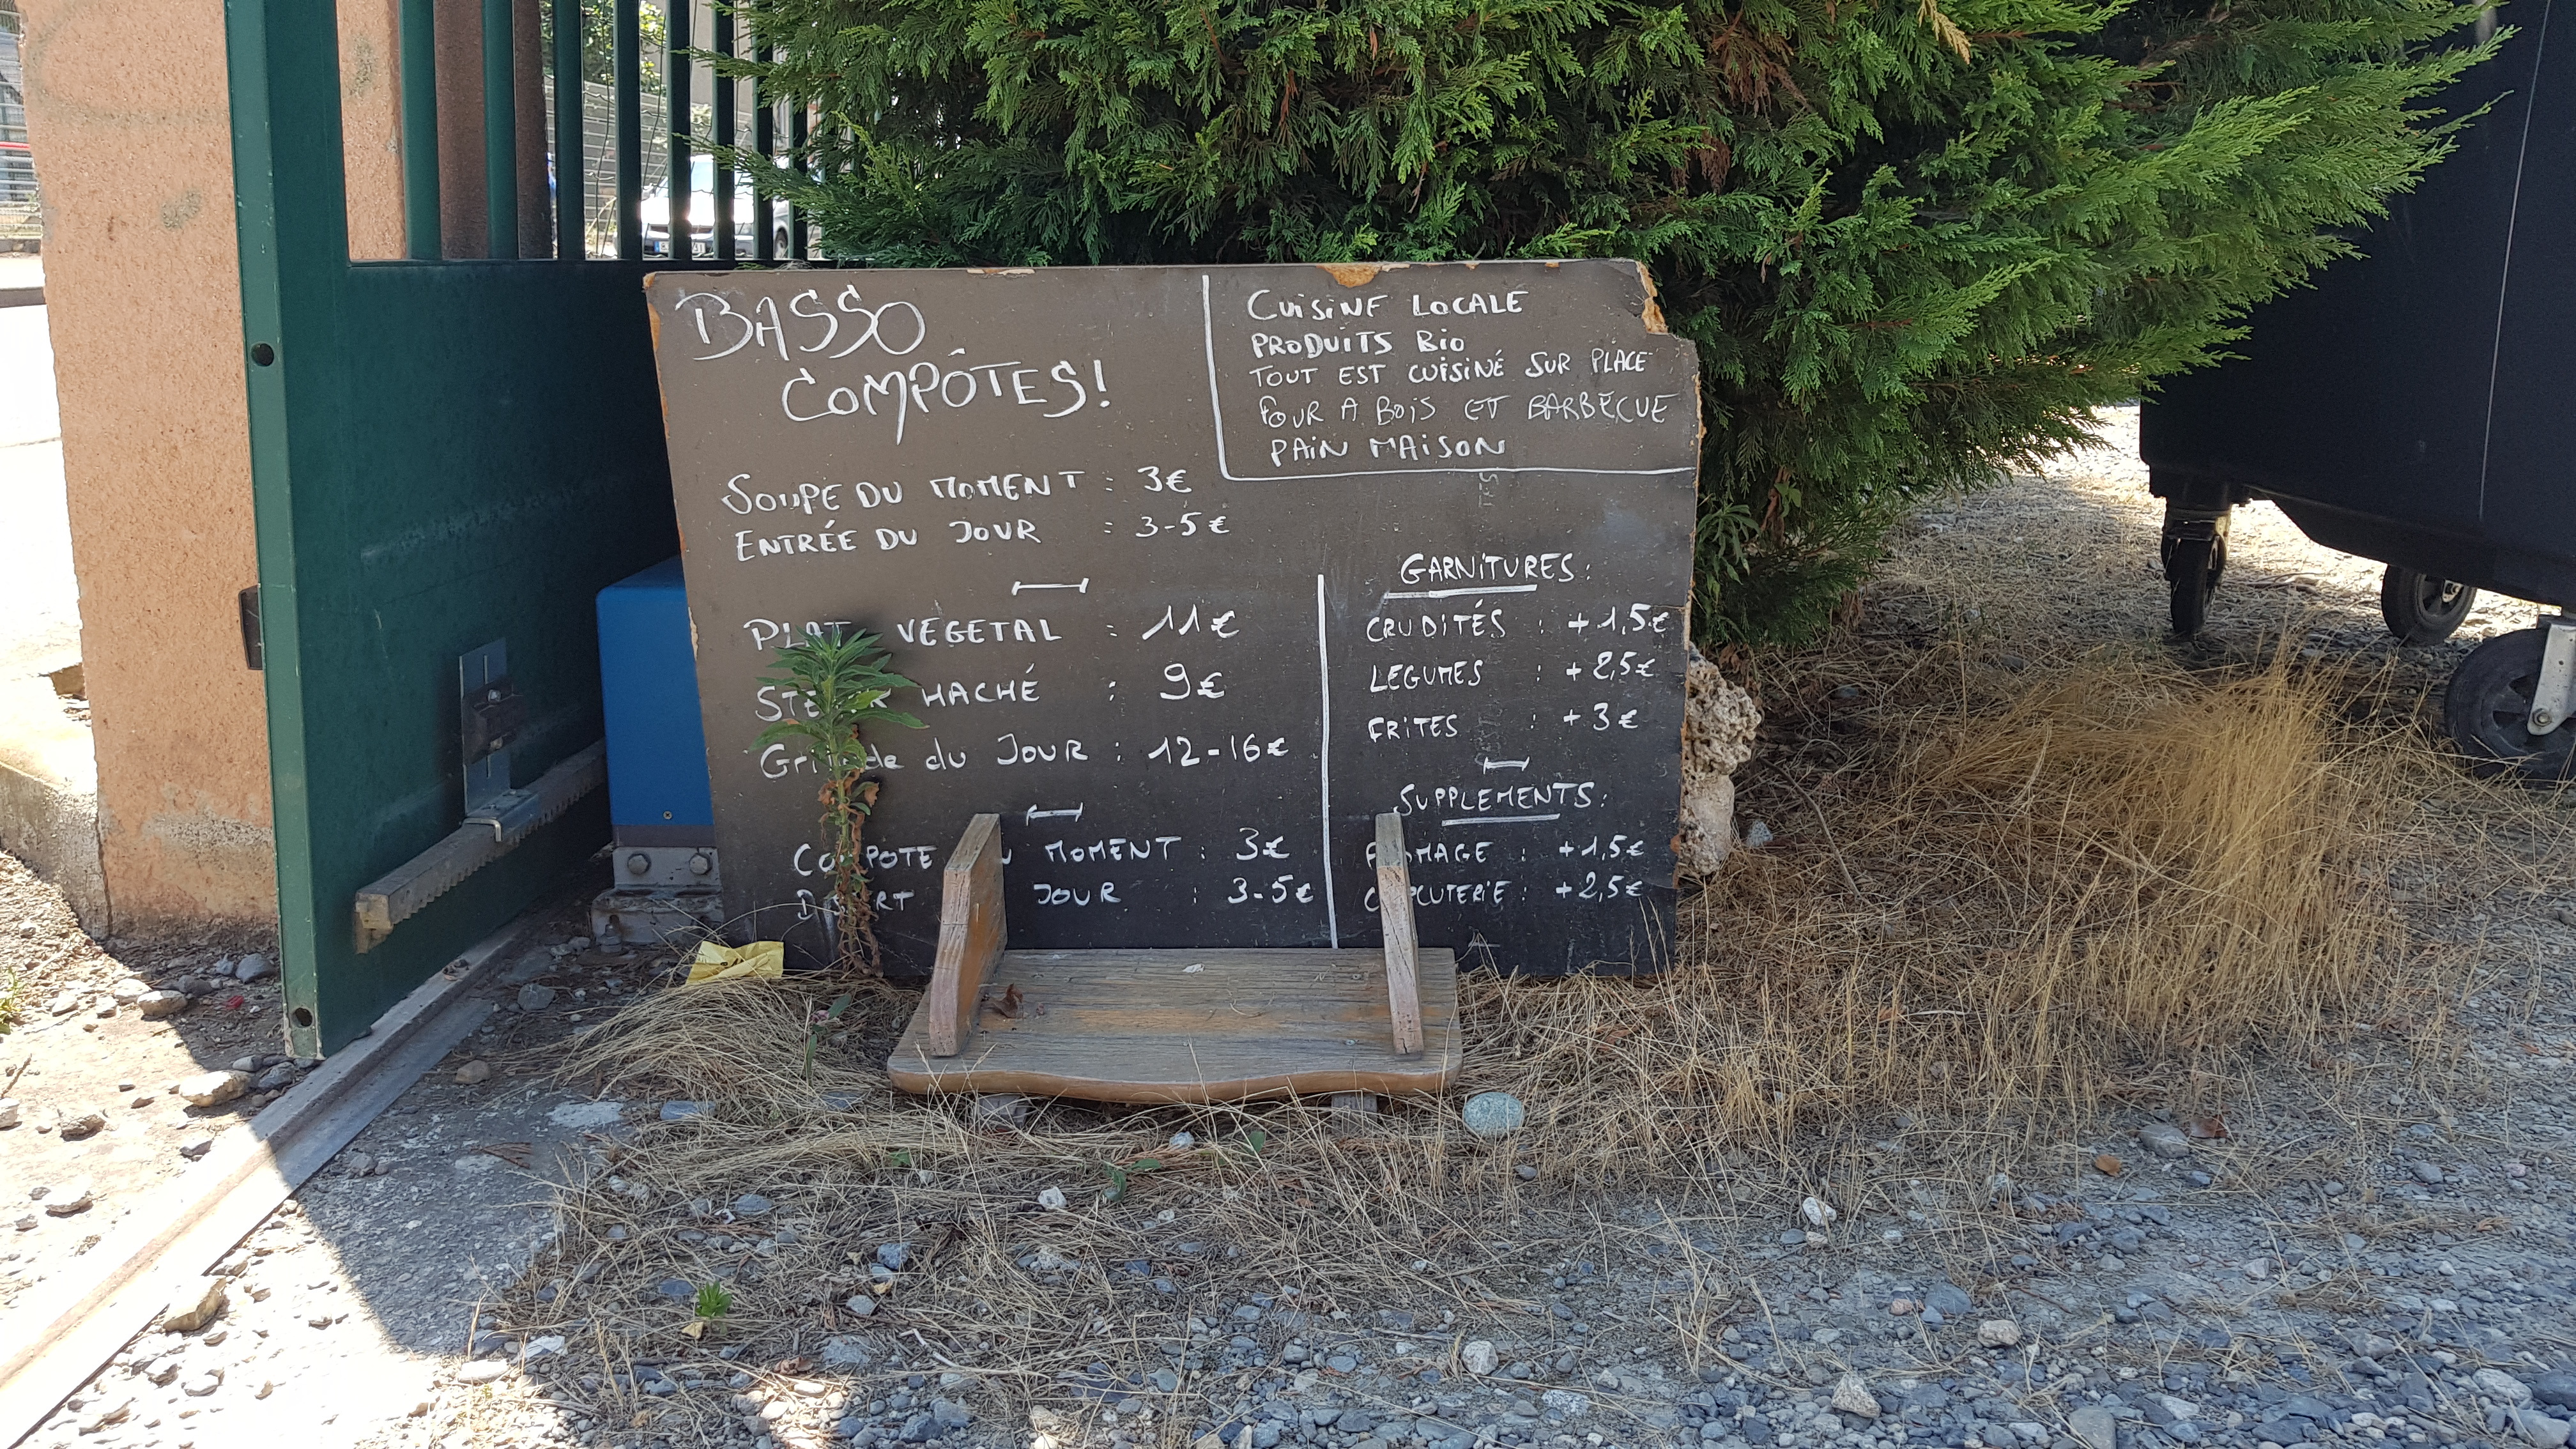 BASSO
COMPÔTES!
CUISINE LOCALE
PRODUITS BIO
TOUT EST CUISINÉ SUR PLACE
FOUR A BOIS ET BARBECUE
PAIN MAISON
SOUPE DU MOMENT : 3€
ENTRÉE DU JOUR : 3-5€
PLAT VEGETAL : 11€
HACHÉ : 9€
du JOUR : 12-16€
MOMENT : 3€
JOUR : 3-5€
GARNITURES:
CRUDITÉS : +1,5€
LEGUMES : +2,5€
FRITES : +3€
SUPPLEMENTS:
FROMAGE : +1,5€
: +2,5€